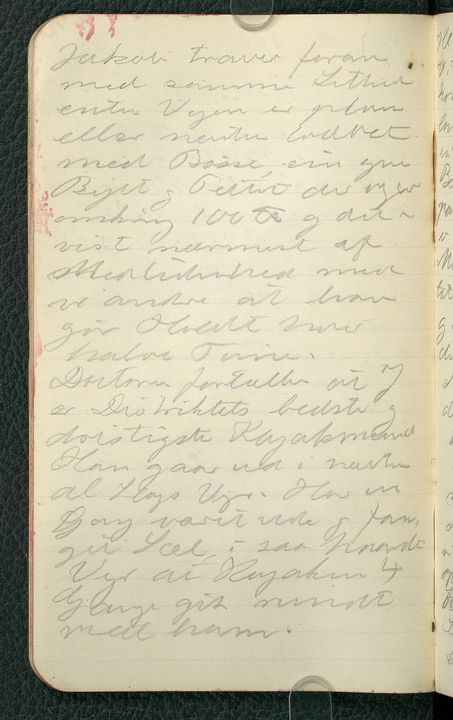 Jakob traver foran
med samme Lethed
enten Vejen er plan
eller næsten lodret
med Bøsse, sin gne
Bylt og Teltet der vejer
omkring 100 ℔ og det er
vist nærmest af
Medlidenhed med
vi andre at han
gør Holdt hver
halve Time.
Doctoren fortæller at J
er Distriktets bedste og
dristigste Kajakmand
Han gaar ud i næsten
al Slags Vejr. Har en
Gang været ude og fan-
get Sæl, i saa haardt
Vejr at Kajaken 4
Gange gik rundt
med ham.